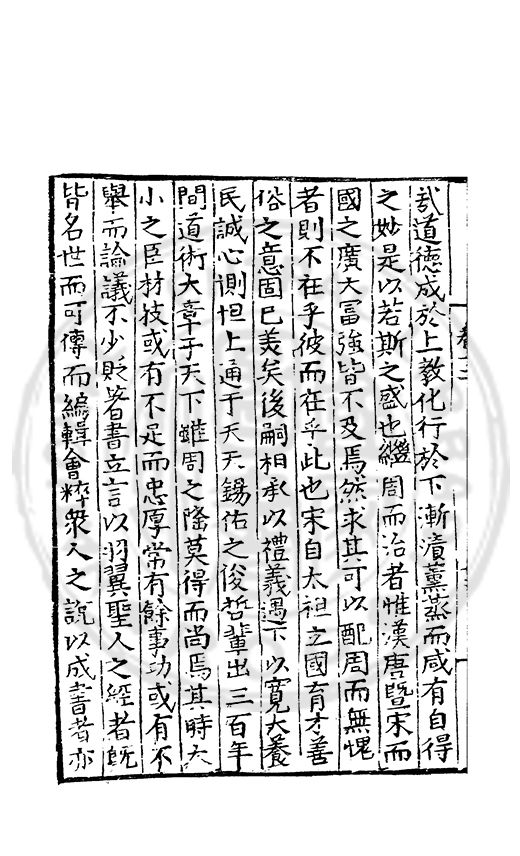 哉道德成於上敎化行於下漸漬薰蒸而咸有自得
之妙是以若斯之盛也繼周而治者惟漢唐曁宋而
國之廣大冨強皆不及焉然求其可以配周而無愧
者則不在乎彼而在乎此也宋自太祖立國育才善
俗之意固已美矣後嗣相承以禮義遇下以寛大養
民誠心惻怛上通于天天錫佑之俊哲輩出三百年
間道術大章于天下雖周之隆莫得而尚焉其時大
小之臣材技或有不足而忠厚常有餘事功或有不
舉而論議不少貶著書立言以羽翼聖人之經者旣
皆名世而可傳而編輯會粹衆人之說以成書者亦